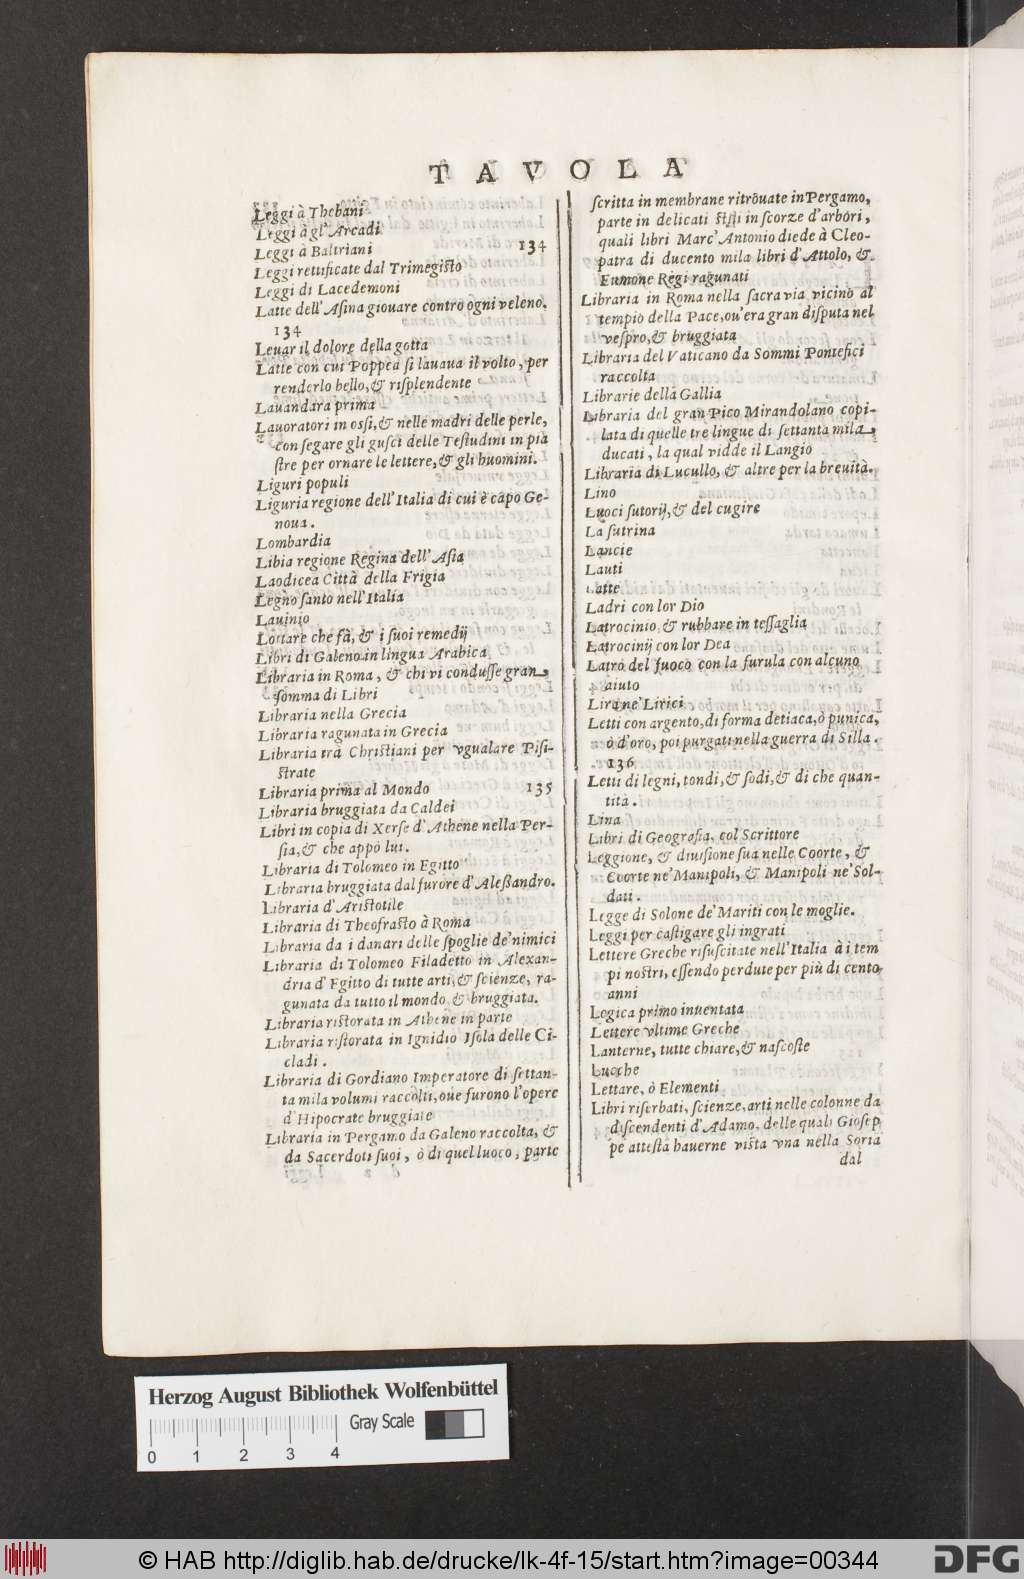 TAVOLA
Leggi à Thebani
Leggi à gl'Arcadi
Leggi à Baltriani 134
Leggi rettificate dal Trimegisto
Leggi di Lacedemoni
Latte dell'Asina giouare contro ogni veleno.
134
Leuar il dolore della gotta
Latte con cui Poppea si lauaua il volto, per
renderlo bello, & risplendente
Lauandara prima
Lauoratori in ossi, & nelle madri delle perle,
con segare gli gusci delle Testudini in pia
stre per ornare le lettere, & gli huomini.
Liguri populi
Liguria regione dell'Italia di cui è capo Ge-
noua.
Lombardia
Libia regione Regina dell'Asia
Laodicea Città della Frigia
Legno santo nell'Italia
Lauinio
Lottare che fà, & i suoi remedij
Libri di Galeno in lingua Arabica
Libraria in Roma, & chi vi condusse gran
somma di Libri
Libraria nella Grecia
Libraria ragunata in Grecia
Libraria trà Christiani per vgualare Pisi-
strate
Libraria prima al Mondo 135
Libraria bruggiata da Caldei
Libri in copia di Xerse d'Athene nella Per-
sia, & che appò lui.
Libraria di Tolomeo in Egitto
Libraria bruggiata dal furore d'Aleßandro.
Libraria d'Aristotile
Libraria di Theofrasto à Roma
Libraria da i danari delle spoglie de'nimici
Libraria di Tolomeo Filadetto in Alexan-
dria d'Egitto di tutte arti, & scienze, ra-
gunata da tutto il mondo, & bruggiata.
Libraria ristorata in Athene in parte
Libraria ristorata in Ignidio Isola delle Ci-
cladi.
Libraria di Gordiano Imperatore di settan-
ta mila volumi raccolti, oue furono l'opere
d'Hipocrate bruggiate
Libraria in Pergamo da Galeno raccolta, &
da Sacerdoti suoi, ò di quel luoco, parte
scritta in membrane ritrouate in Pergamo,
parte in delicati fissi in scorze d'arbori,
quali libri Marc'Antonio diede à Cleo-
patra di ducento mila libri d'Attolo, &
Eumone Regi ragunati
Libraria in Roma nella sacra via vicino al
tempio della Pace, ou'era gran disputa nel
vespro, & bruggiata
Libraria del Vaticano da Sommi Pontefici
raccolta
Librarie della Gallia
Libraria del gran Pico Mirandolano copi-
lata di quelle tre lingue di settanta mila
ducati, la qual vidde il Langio
Libraria di Lucullo, & altre per la breuità.
Lino
Luoci sutorij, & del cugire
La sutrina
Lancie
Lauti
Latte
Ladri con lor Dio
Latrocinio, & rubbare in tessaglia
Latrocinij con lor Dea
Latro del fuoco con la furula con alcuno
aiuto
Lira ne'Lirici
Letti con argento, di forma detiaca, ò punica,
ò d'oro, poi purgati nella guerra di Silla.
136
Letti di legni, tondi, & sodi, & di che quan-
tità.
Lina
Libri di Geografia, col Scrittore
Leggione, & diuisione sua nelle Coorte, &
Coorte ne'Manipoli, & Manipoli ne'Sol-
dati.
Legge di Solone de'Mariti con le moglie.
Leggi per castigare gli ingrati
Lettere Greche risuscitate nell'Italia à i tem
pi nostri, essendo perdute per più di cento
anni
Logica primo inuentata
Lettere vltime Greche
Lanterne, tutte chiare, & nascoste
Luoche
Lettare, ò Elementi
Libri riserbati, scienze, arti nelle colonne da
discendenti d'Adamo, delle quali Giosep
pe attesta hauerne vista vna nella Soria
dal
Herzog August Bibliothek Wolfenbüttel
Gray Scale
0 1 2 3 4
© HAB http://diglib.hab.de/drucke/lk-4f-15/start.htm?image=00344
DFG